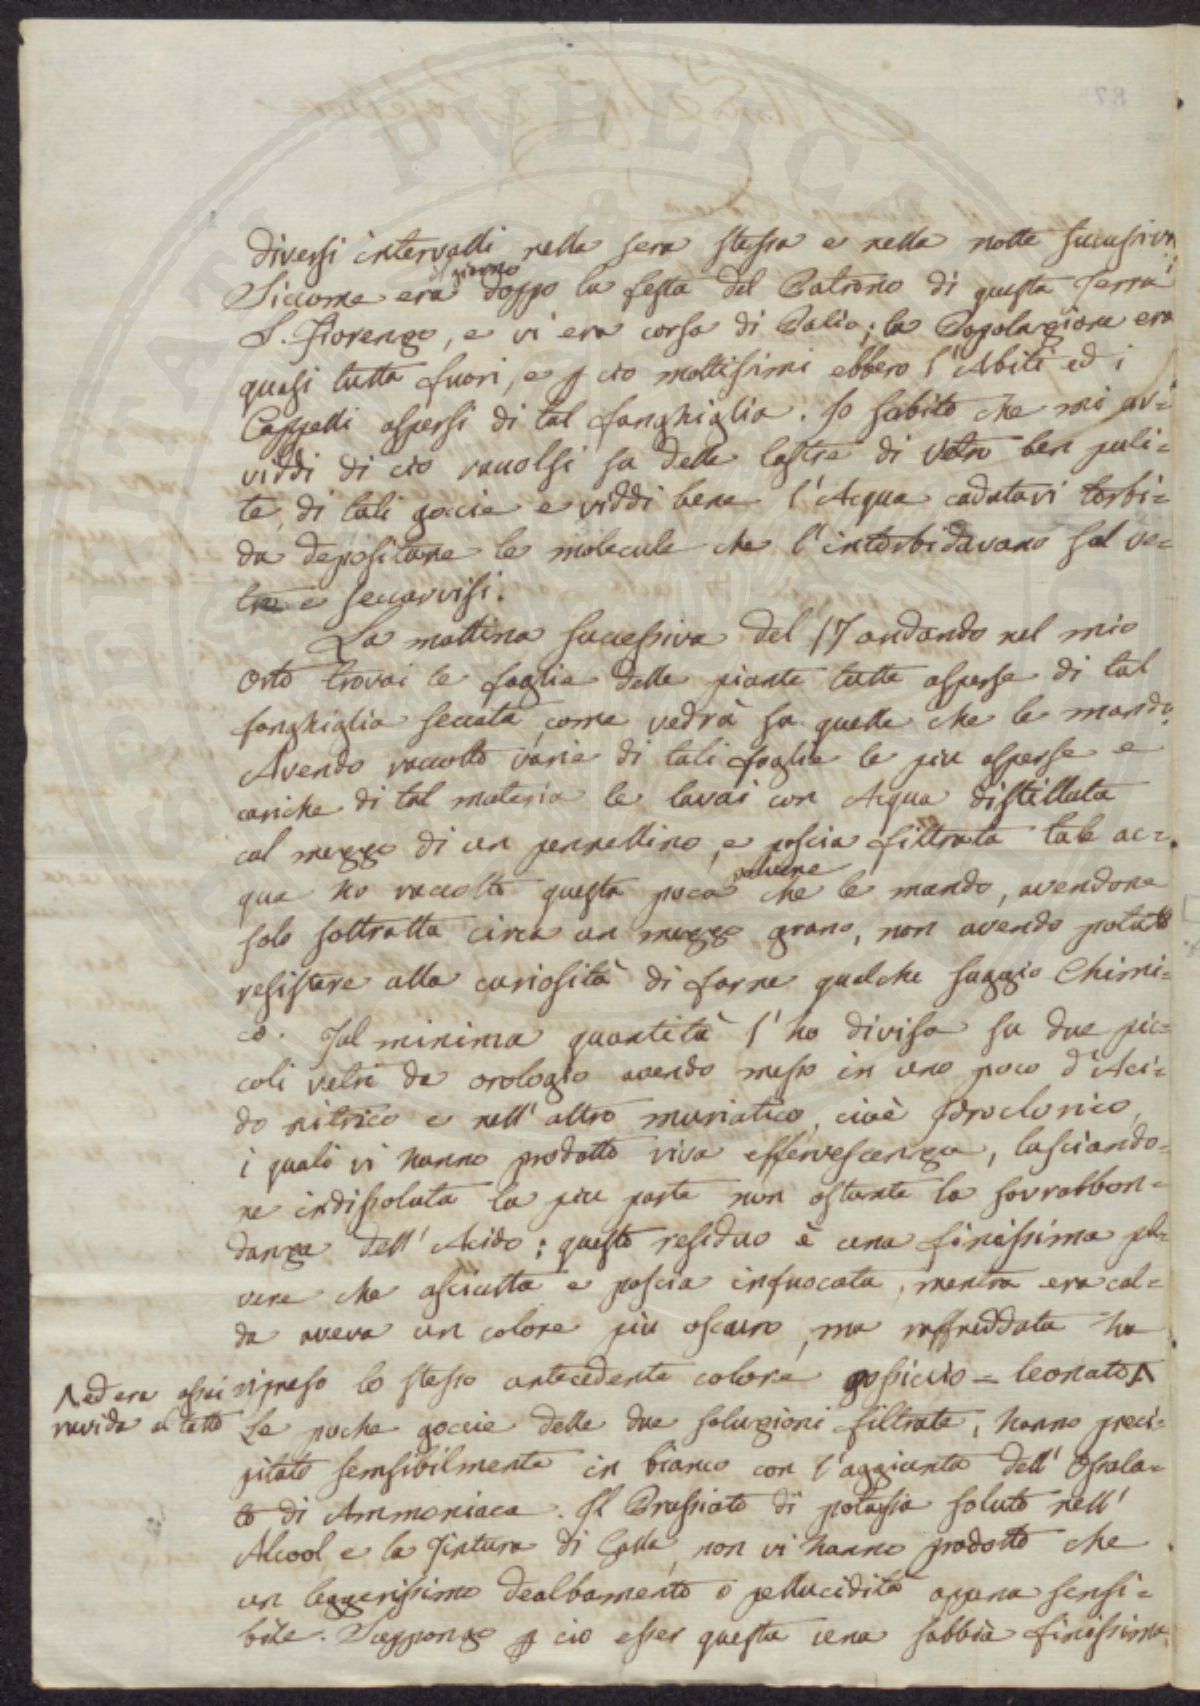 diversi intervalli nella sera stessa e nella notte successiva
Siccome era il giorno doppo la festa del Patrono di questa Terra
S. Fiorenzo, e vi era corsa di Palio; la Popolazione era
quasi tutta fuori, e p ciò moltissimi ebbero l'Abiti ed i
Cappelli aspersi di tal fanghiglia. Io subito che mi av=
viddi di ciò raccolsi su delle lastre di Vetro ben puli=
te, di tali goccie e viddi bene l'Acqua cadutavi torbi=
da depositare le molecule che l'intorbidavano sul ve=
tro e seccarvisi.
La mattina successiva del 17 andando nel mio
Orto trovai le foglie delle piante tutte asperse di tal
fanghiglia seccata, come vedrà su quelle che le mando,
Avendo raccolto varie di tali foglie le più asperse e
cariche di tal materia le lavai con Acqua distillata
col mezzo di un pennellino, e poscia filtrata tale ac=
qua ho raccolto questa poca polvere che le mando, avendone
solo sottratta circa un mezzo grano, non avendo potuto
resistere alla curiosità di farne qualche saggio Chimi=
co. Tal minima quantità l'ho divisa su due pic=
coli vetri da orologio avendo messo in uno poco d'Aci=
do nitrico e nell'altro muriatico, cioè Idroclorico,
i quali vi hanno prodotto viva effervescenza, lasciando=
ne indissoluta la più parte non ostante la sovrabbon=
danza dell'Acido; questo residuo è una finissima pol=
vere che asciutta e poscia infuocata, mentre era cal=
da aveva un colore più oscuro, ma raffreddata ha
ripreso lo stesso antecedente colore rossiccio = leonato Λ
Λ ed era assai
ruvida al tatto
Le poche goccie delle due soluzioni filtrate, hanno preci=
pitato sensibilmente in bianco con l'aggiunta dell'Ossala=
to di Ammoniaca. Il Prussiato di potassa soluto nell'
Alcool e la Tintura di Galla, non vi hanno prodotto che
un leggerissimo dealbamento o pellucidità appena sensi=
bile. Suppongo p ciò esser questa una sabbia finissima